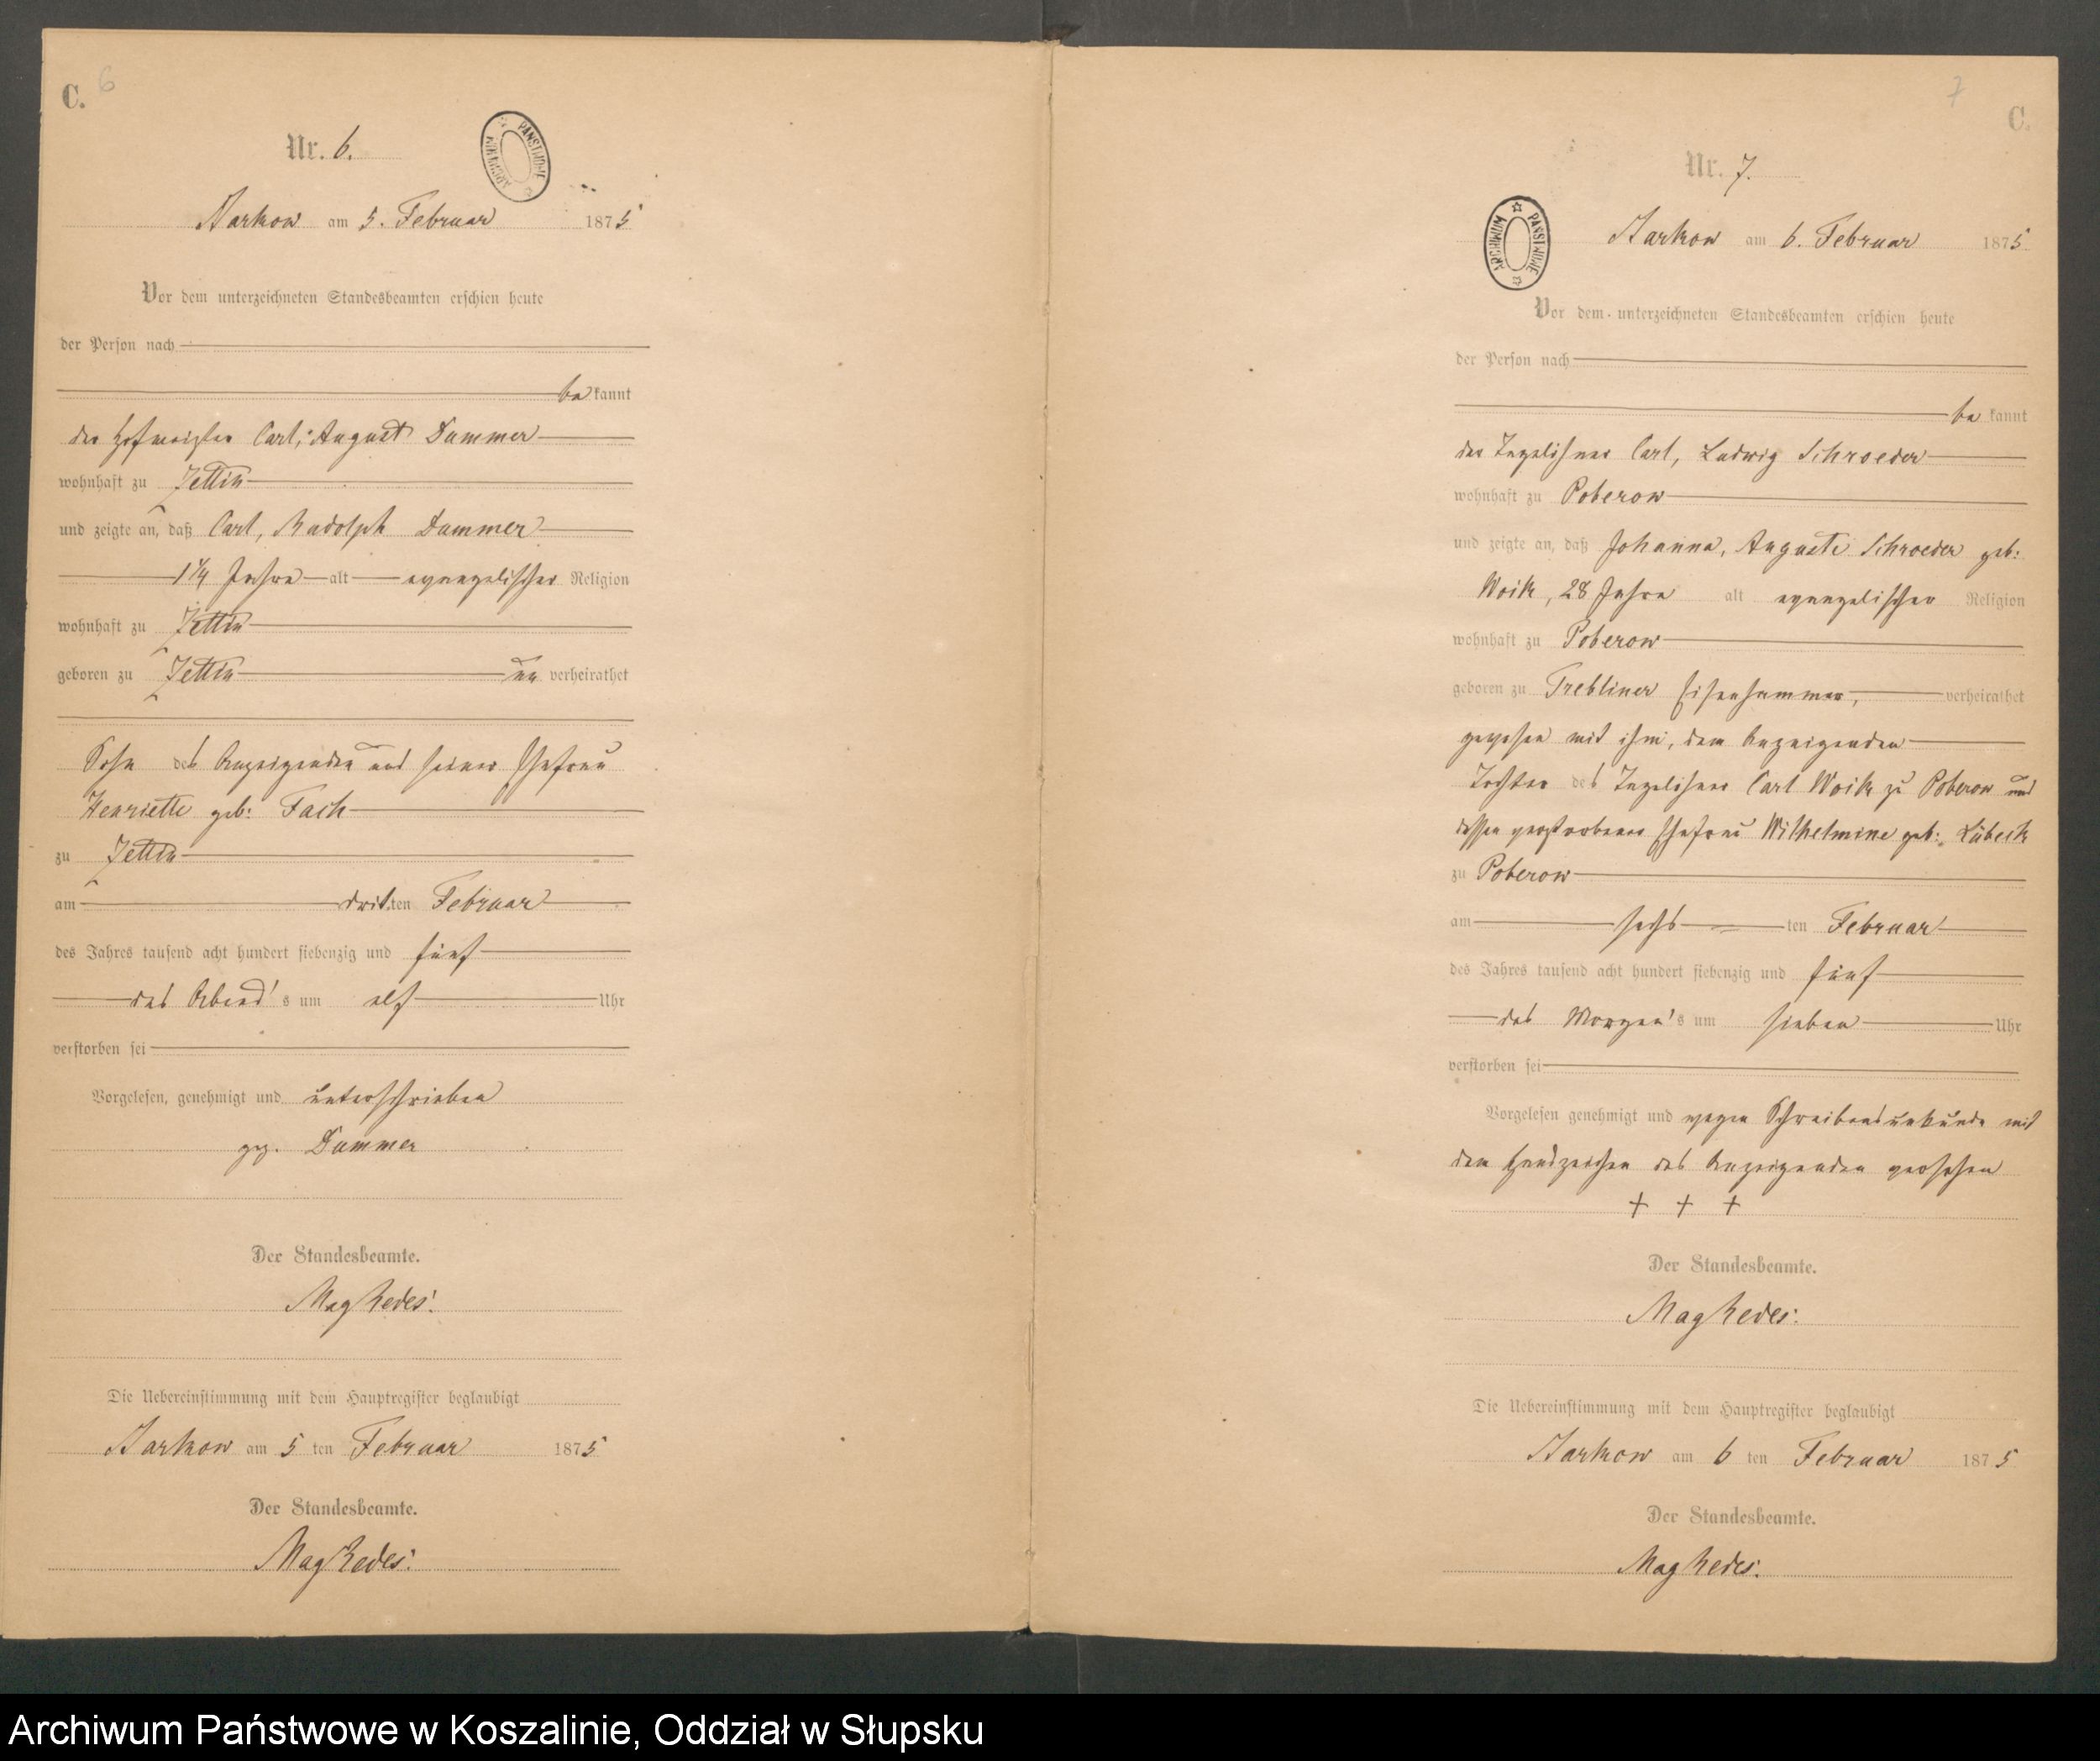 C. 6
Nr. 6.
Startkow am 5. Februar 1875
Vor dem unterzeichneten Standesbeamten erschien heute
der Person nach
bekannt
der Hofmeister Carl, August Dummer
wohnhaft zu Zettin
und zeigte an, daß Carl, Rudolph Dummer
1 1/4 Jahre alt evangelischer Religion
wohnhaft zu Zettin
geboren zu Zettin unverheirathet
Sohn des Anzeigenden und seiner Ehefrau
Henriette geb:
zu Zettin
am dritten Februar
des Jahres tausend acht hundert siebenzig und fünf
des Abend's um elf Uhr
verstorben sei
Vorgelesen, genehmigt und unterschrieben
gez. Dummer
Der Standesbeamte.
Die Uebereinstimmung mit dem Hauptregister beglaubigt
am 5 ten Februar 1875
Der Standesbeamte.
7
C.
Nr. 7.
ARCHIWUM PAŃSTWOWE
am 6. Februar 1875
Vor dem unterzeichneten Standesbeamten erschien heute
der Person nach
bekannt
der Tagelöhner Carl, Ludwig Schroeder
wohnhaft zu Poberow
und zeigte an, daß Johanna, Auguste Schroeder geb:
Woik, 28 Jahre alt evangelischer Religion
wohnhaft zu Poberow
geboren zu Trebliner Eisenhammer, verheirathet
gewesen mit ihm, dem Anzeigenden
Tochter des Tagelöhner Carl Woik zu Poberow und
dessen verstorbener Ehefrau Wilhelmine geb: Lübeck
zu Poberow
am sechsten Februar
des Jahres tausend acht hundert siebenzig und fünf
des Morgen's um sieben Uhr
verstorben sei
Vorgelesen genehmigt und wegen Schreibensunkunde mit
dem Handzeichen des Anzeigenden versehen
+ + +
Der Standesbeamte.
Die Uebereinstimmung mit dem Hauptregister beglaubigt
am 6 ten Februar 1875
Der Standesbeamte.
Archiwum Państwowe w Koszalinie, Oddział w Słupsku